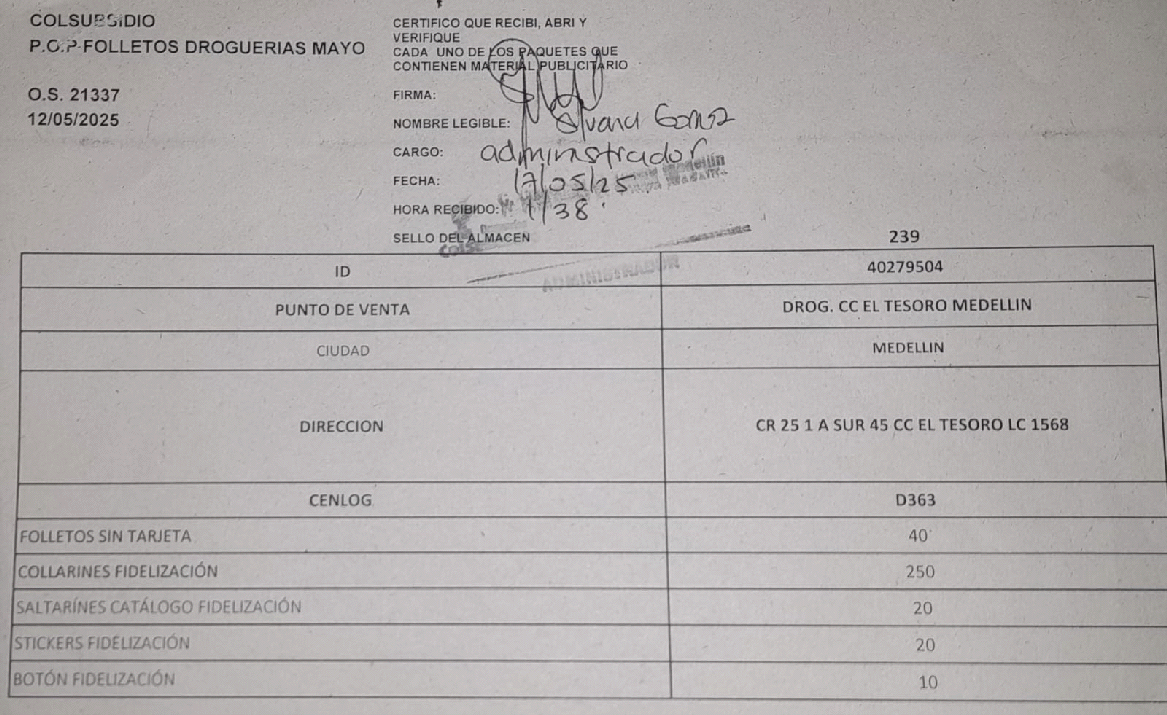 COLSUBSIDIO
P.O.P-FOLLETOS DROGUERIAS MAYO
O.S. 21337
12/05/2025
CERTIFICO QUE RECIBI, ABRI Y
VERIFIQUE
CADA UNO DE LOS PAQUETES QUE
CONTIENEN MATERIAL PUBLICITARIO
FIRMA:
NOMBRE LEGIBLE:
CARGO: administrador
FECHA: 17/05/25
HORA RECIBIDO: 1/38
SELLO DEL ALMACEN
ADMINISTRADOR
239
ID 40279504
PUNTO DE VENTA DROG. CC EL TESORO MEDELLIN
CIUDAD MEDELLIN
DIRECCION CR 25 1 A SUR 45 CC EL TESORO LC 1568
CENLOG D363
FOLLETOS SIN TARJETA 40
COLLARINES FIDELIZACIÓN 250
SALTARÍNES CATÁLOGO FIDELIZACIÓN 20
STICKERS FIDELIZACIÓN 20
BOTÓN FIDELIZACIÓN 10